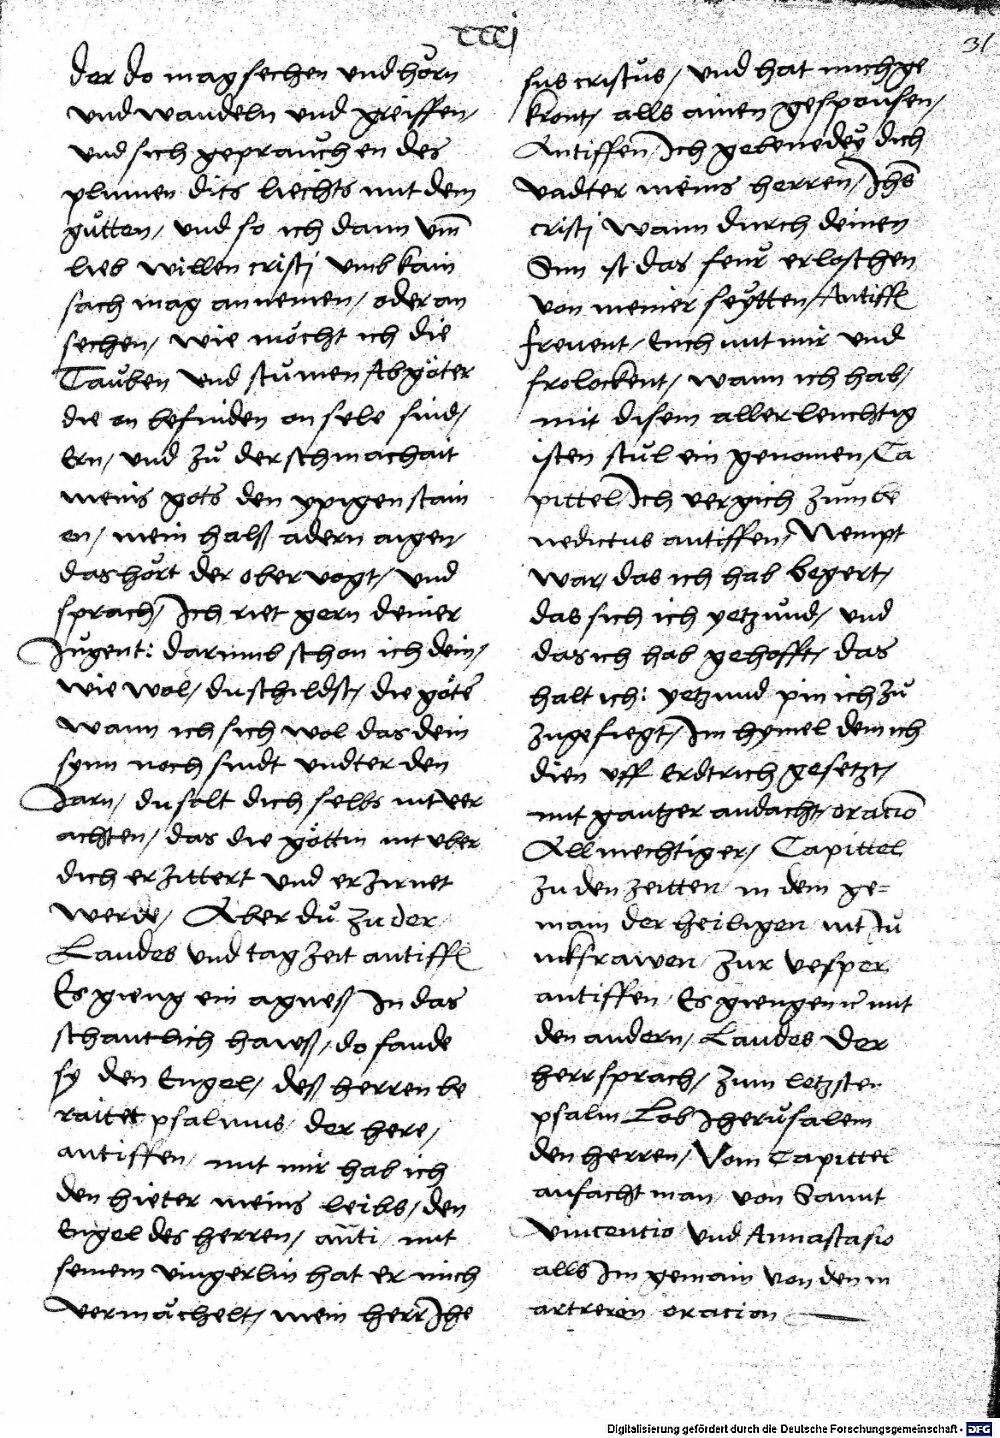 xxxj
31
der do mag sechen vnd hörn
vnd wandeln vnd greiffen,
vnd sich gepraüchen des
plumen dits liechts mit dem
gůtten, vnd so ich dann vm̄
lieb willen cristj vmb kain
sach mag an nemen, oder an
sechen, wie möcht ich die
Tauben vnd stumen Abgöter
die on befinden on sele sind,
Ern, vnd zů der schmachait
meins gots den ypigen stain
en, mein halß adern aigen,
das hört der obervogt, vnd
sprach, Ich riet gern deiner
Jugent: darumb schon ich dein,
wie wol, du schildst, die göte
wann ich sich wol das dein
synn noch sindt vndter den
Jarn, du solt dich selbs nit ver
achten, das die göttin nit vber
dich erzittert vnd erzirnet
werde, Aber dů zu der
Laudes vnd tagzeit antiff
Es gieng ein agneß In das
schantlich hawß, do fande
sy den Engel, deß herren be
raitet psalmus der here,
antiffen, mit mir hab ich
den hieter meins leibs, den
Engel des herren, anti mit
seinem vingerlin hat er mich
vermächelt, mein herr Jhe
sus cristus, vnd hat mich ge
kront, alls ainen gespousen,
Antiffen, Ich gebenedey dich
vadter meins herren, Jhs
cristj wann durch deinen
Sun ist das feur erloschen
von meiner seytten, Antiff
frewent, Euch mit mir vnd
frolockent, wann ich hab,
mit disem aller leuchtig
isten stůl ein genomen, Ca
pittel, Ich vergich zum be
nedictus antiffen, Nempt
war, das ich hab begert,
das sich ich yetzund, vnd
das ich hab gehofft, das
halt ich: yetzund pin ich zů
zugefiegt, Im hymel dem ich
dien vff erdtrich gesetzt,
mit gantzer andacht, oracio
Allmechtiger, Capittel
zu den zeitten in dem ge=
main der heiligen nit Ju
nkfrawen zur vesper
antiffen, Es giengen mit
den andern, Laudes der
herr sprach, zum letzsten
psalm Lob Jherusalem
den herren, Vom Capittel
anfacht man von Sannt
Vincentio vnd Annastasio
alls Im gemain von den m
artrern oracion
Digitalisierung gefördert durch die Deutsche Forschungsgemeinschaft - DFG